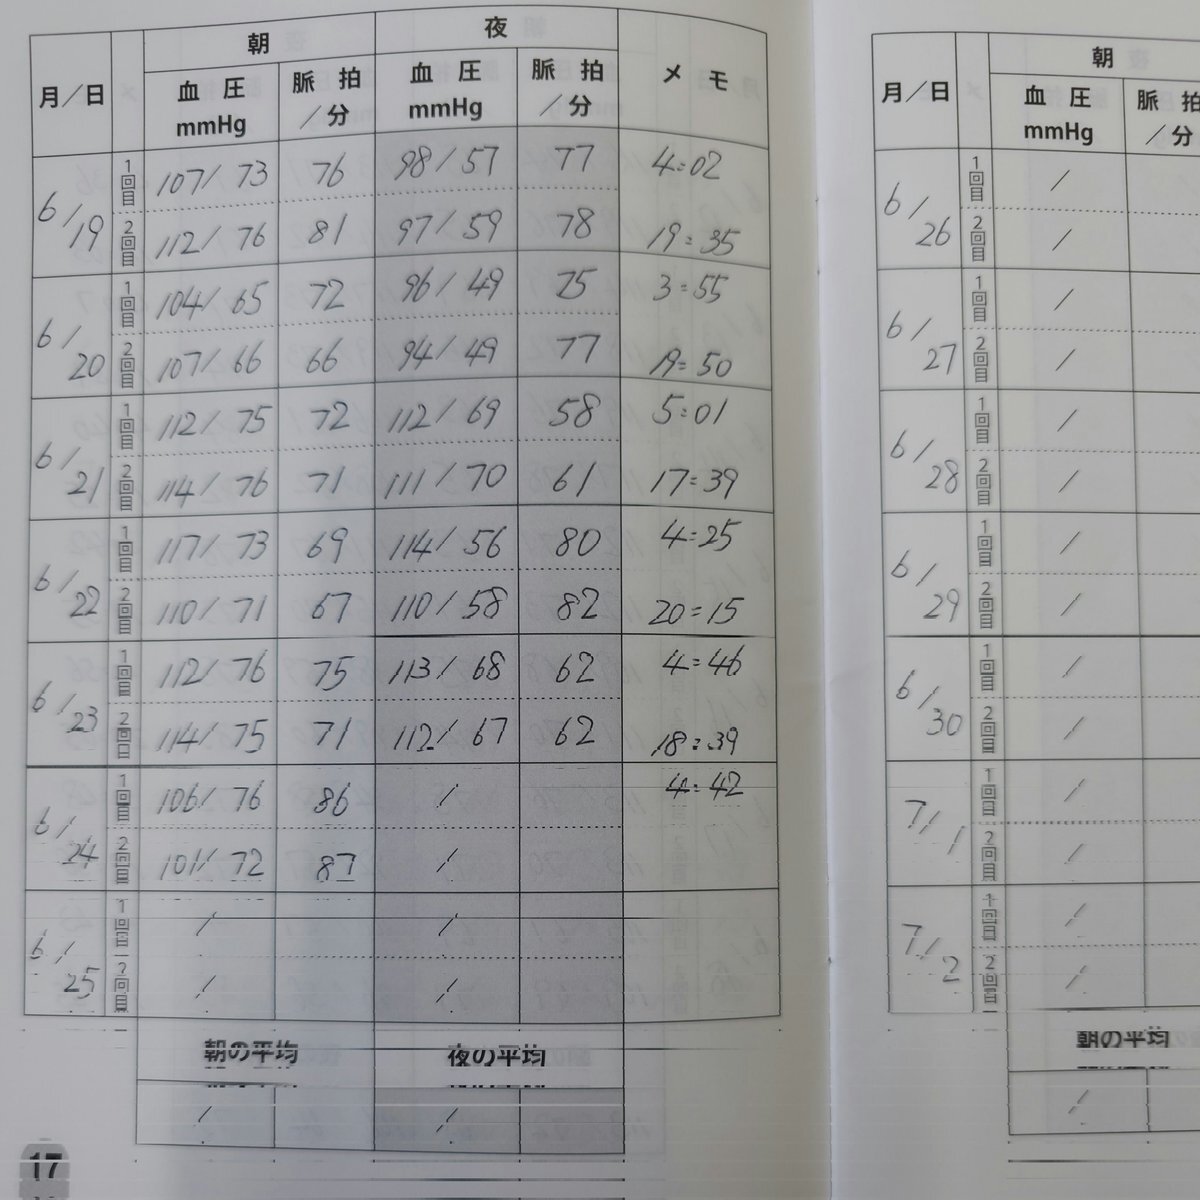 朝 夜
月／日 血圧 mmHg 脈拍 ／分 血圧 mmHg 脈拍 ／分 メモ
6/19 1回目 107/73 76 98/57 77 4:02
2回目 112/76 81 97/59 78 19:35
6/20 1回目 104/65 72 96/49 75 3:55
2回目 107/66 66 94/49 77 19:50
6/21 1回目 112/75 72 112/69 58 5:01
2回目 114/76 71 111/70 61 17:39
6/22 1回目 117/73 69 114/56 80 4:25
2回目 110/71 67 110/58 82 20:15
6/23 1回目 112/76 75 113/68 62 4:46
2回目 114/75 71 112/67 62 18:39
6/24 1回目 106/76 86 / 4:42
2回目 101/72 87 /
6/25 1回目 / /
2回目 / /
朝の平均 夜の平均
/ /
17
朝
月／日 血圧 mmHg 脈拍 ／分
6/26 1回目 /
2回目 /
6/27 1回目 /
2回目 /
6/28 1回目 /
2回目 /
6/29 1回目 /
2回目 /
6/30 1回目 /
2回目 /
7/1 1回目 /
2回目 /
7/2 1回目 /
2回目 /
朝の平均
/